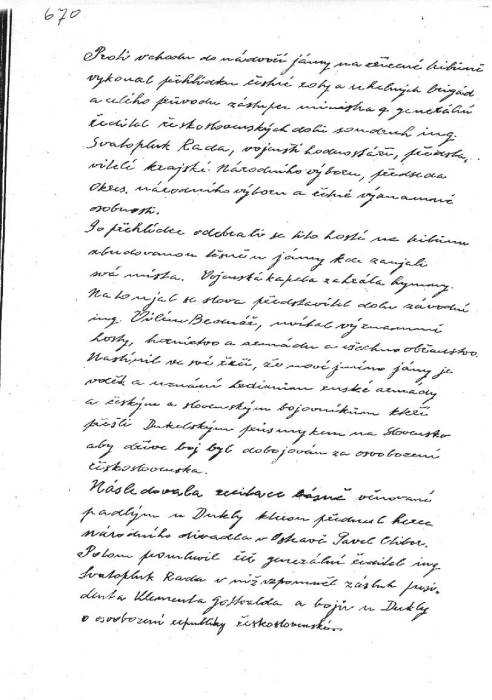 670
Proti vchodu do nádvoří jámy na zřízené tribuně
vykonal přehlídku čestné roty a uhelných brigád
a celého průvodu zástupce ministra q. generální
ředitel československých dolů soudruh ing.
Svatopluk Rada, vojenští hodnostáři, předsta-
vitelé krajské Národního výboru, předseda
Okres. národního výboru a četné významné
osobnosti.
Po přehlídce odebrali se tito hosté na tribunu
zbudovanou těsně u jámy kde zaujali
svá místa. Vojenská kapela zahrála hymny.
Na to ujal se slova představitel dolu závodní
ing. Vilém Bednář, uvítal významné
hosty, hornictvo a armádu a všechno občanstvo.
Nastínil ve své řeči, že nové jméno jámy je
vděk a uznání hrdinům ruské armády
a českým a slovenským bojovníkům kteří
přešli Dukelským průsmykem na Slovensko
aby dříve boj byl dobojován za osvobození
československa.
Následovala recitace básně věnované
padlým u Dukly kterou přednesl herec
národního divadla v Ostravě Pavel
Potom promluvil generální ředitel ing.
Svatopluk Rada v níž vzpomněl zásluh presi-
denta Klementa Gottwalda a bojů u Dukly
o osvobození republiky československé.